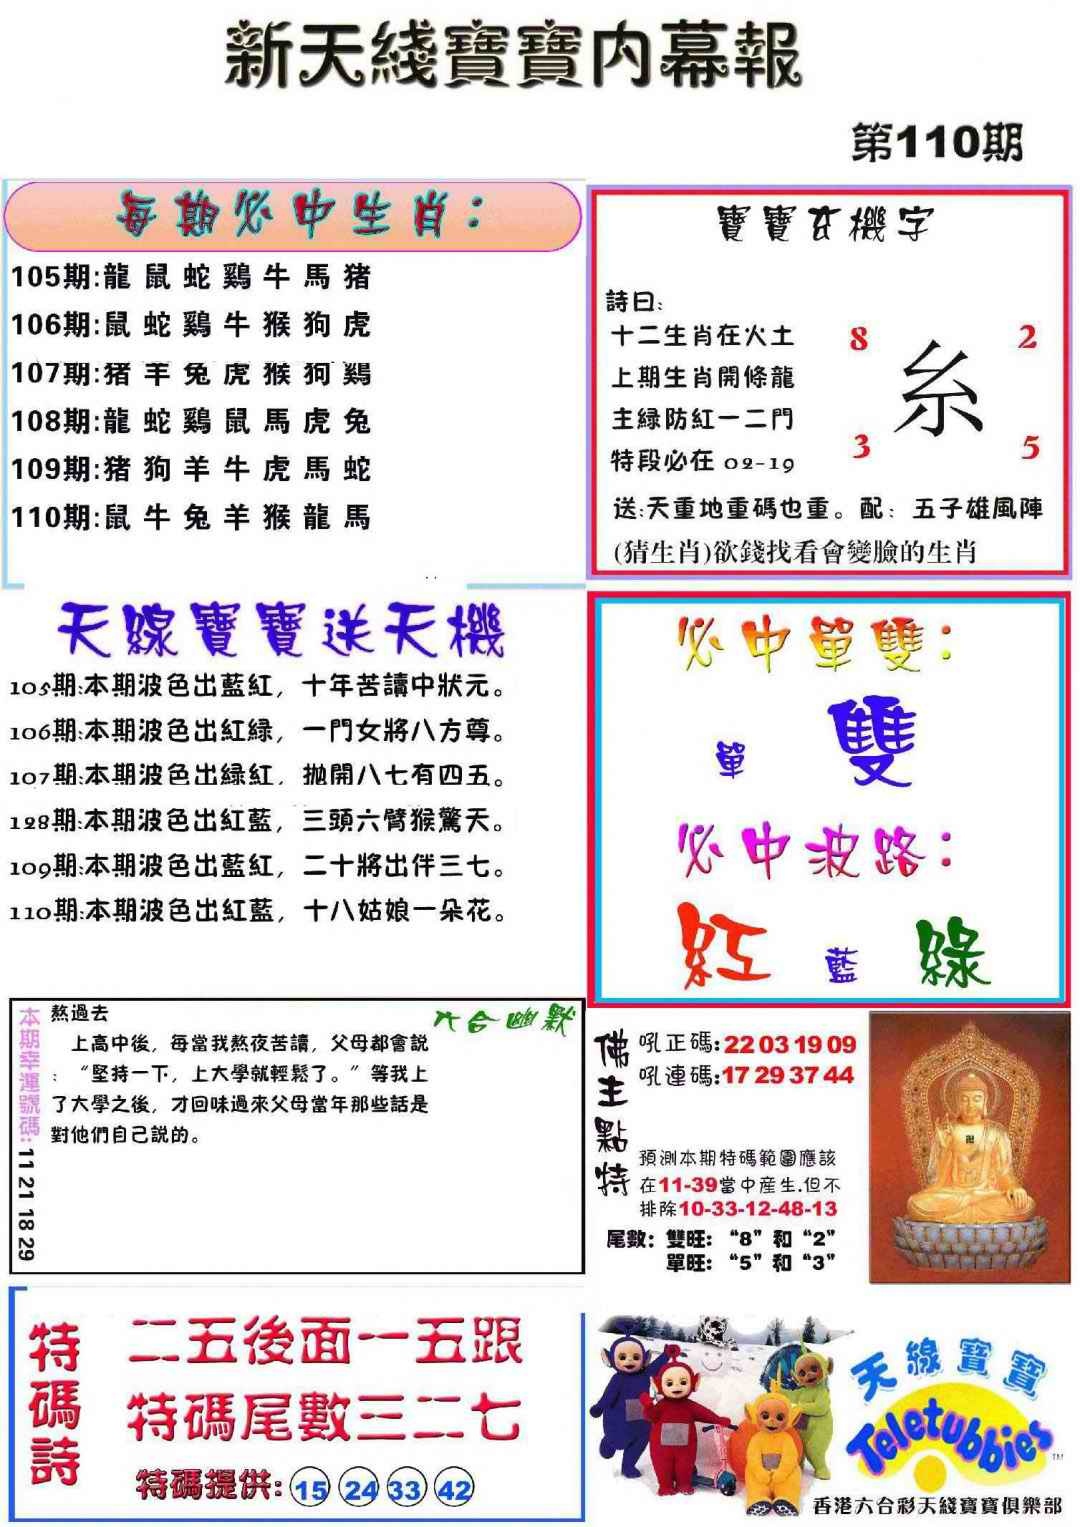 新天綫寶寶内幕報
第110期
每期必中生肖：
105期:龍鼠蛇鷄牛馬猪
106期:鼠蛇鷄牛猴狗虎
107期:猪羊兔虎猴狗鷄
108期:龍蛇鷄鼠馬虎兔
109期:猪狗羊牛虎馬蛇
110期:鼠牛兔羊猴龍馬
寶寶玄機字
詩曰:
十二生肖在火土
上期生肖開條龍
主緑防紅一二門
特段必在 02-19
8
2
糸
3
5
送:天重地重碼也重。配：五子雄風陣
(猜生肖)欲錢找看會變臉的生肖
天線寶寶送天機
105期:本期波色出藍紅，十年苦讀中狀元。
106期:本期波色出紅緑，一門女將八方尊。
107期:本期波色出緑紅，抛開八七有四五。
128期:本期波色出紅藍，三頭六臂猴驚天。
109期:本期波色出藍紅，二十將出伴三七。
110期:本期波色出紅藍，十八姑娘一朵花。
必中單雙：
單 雙
必中波路：
紅 藍 綠
本期幸運號碼: 11 21 18 29
六合幽默
熬過去
上高中後，每當我熬夜苦讀，父母都會説
：“堅持一下，上大學就輕鬆了。”等我上
了大學之後，才回味過來父母當年那些話是
對他們自己説的。
佛主點特
吼正碼:22 03 19 09
吼連碼:17 29 37 44
預測本期特碼範圍應該
在11-39當中産生.但不
排除10-33-12-48-13
尾數：雙旺：“8”和“2”
單旺：“5”和“3”
特碼詩
二五後面一五跟
特碼尾數三二七
特碼提供: 15 24 33 42
天線寶寶
Teletubbies TM
香港六合彩天綫寶寶俱樂部